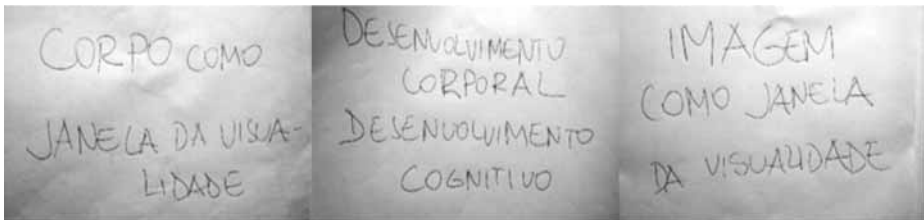 CORPO COMO
JANELA DA VISUA-
LIDADE
DESENVOLVIMENTO
CORPORAL
DESENVOLVIMENTO
COGNITIVO
IMAGEM
COMO JANELA
DA VISUALIDADE